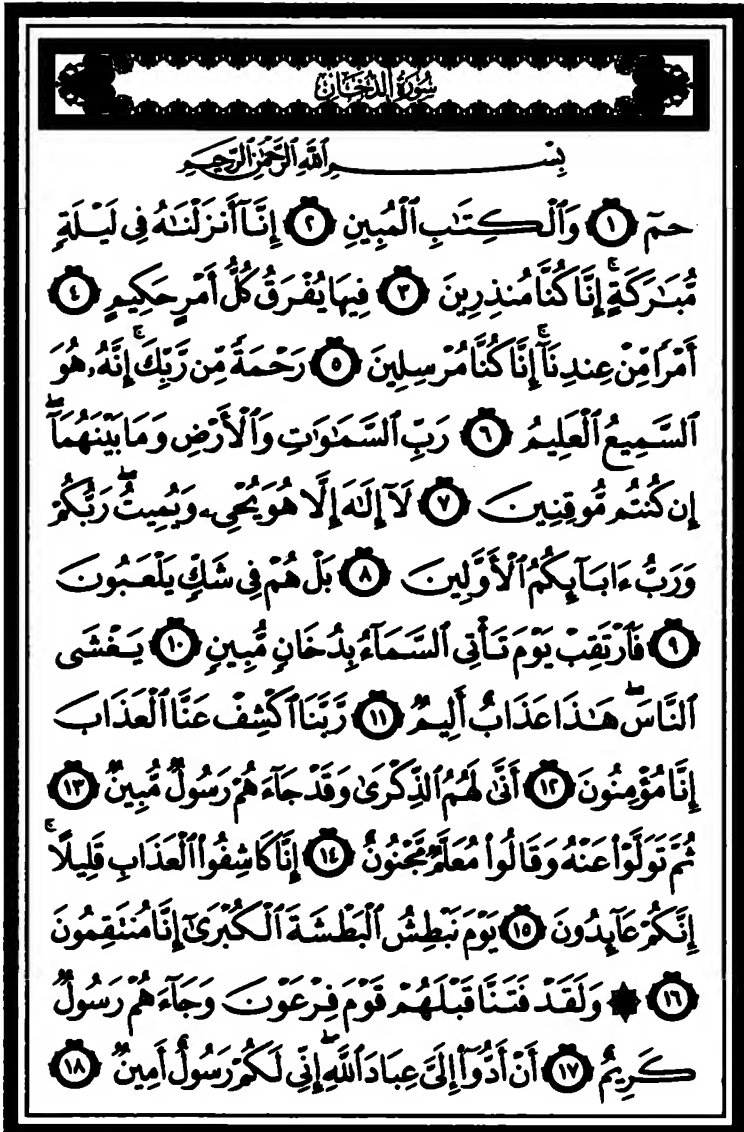 سُورَةُ الدُّخَانِ
بِسْمِ ٱللَّهِ ٱلرَّحْمَٰنِ ٱلرَّحِيمِ
حمٓ ١ وَٱلْكِتَٰبِ ٱلْمُبِينِ ٢ إِنَّآ أَنزَلْنَٰهُ فِى لَيْلَةٍ
مُّبَٰرَكَةٍ ۚ إِنَّا كُنَّا مُنذِرِينَ ٣ فِيهَا يُفْرَقُ كُلُّ أَمْرٍ حَكِيمٍ ٤
أَمْرًا مِّنْ عِندِنَآ ۚ إِنَّا كُنَّا مُرْسِلِينَ ٥ رَحْمَةً مِّن رَّبِّكَ ۚ إِنَّهُۥ هُوَ
ٱلسَّمِيعُ ٱلْعَلِيمُ ٦ رَبِّ ٱلسَّمَٰوَٰتِ وَٱلْأَرْضِ وَمَا بَيْنَهُمَآ ۖ
إِن كُنتُم مُّوقِنِينَ ٧ لَآ إِلَٰهَ إِلَّا هُوَ يُحْىِۦ وَيُمِيتُ ۖ رَبُّكُمْ
وَرَبُّ ءَابَآئِكُمُ ٱلْأَوَّلِينَ ٨ بَلْ هُمْ فِى شَكٍّ يَلْعَبُونَ
٩ فَٱرْتَقِبْ يَوْمَ تَأْتِى ٱلسَّمَآءُ بِدُخَانٍ مُّبِينٍ ١٠ يَغْشَى
ٱلنَّاسَ ۖ هَٰذَا عَذَابٌ أَلِيمٌ ١١ رَّبَّنَا ٱكْشِفْ عَنَّا ٱلْعَذَابَ
إِنَّا مُؤْمِنُونَ ١٢ أَنَّىٰ لَهُمُ ٱلذِّكْرَىٰ وَقَدْ جَآءَهُمْ رَسُولٌ مُّبِينٌ ١٣
ثُمَّ تَوَلَّوْا۟ عَنْهُ وَقَالُوا۟ مُعَلَّمٌ مَّجْنُونٌ ١٤ إِنَّا كَاشِفُوا۟ ٱلْعَذَابِ قَلِيلًا ۚ
إِنَّكُمْ عَآئِدُونَ ١٥ يَوْمَ نَبْطِشُ ٱلْبَطْشَةَ ٱلْكُبْرَىٰٓ إِنَّا مُنتَقِمُونَ
١٦ ۞ وَلَقَدْ فَتَنَّا قَبْلَهُمْ قَوْمَ فِرْعَوْنَ وَجَآءَهُمْ رَسُولٌ
كَرِيمٌ ١٧ أَنْ أَدُّوٓا۟ إِلَىَّ عِبَادَ ٱللَّهِ ۖ إِنِّى لَكُمْ رَسُولٌ أَمِينٌ ١٨